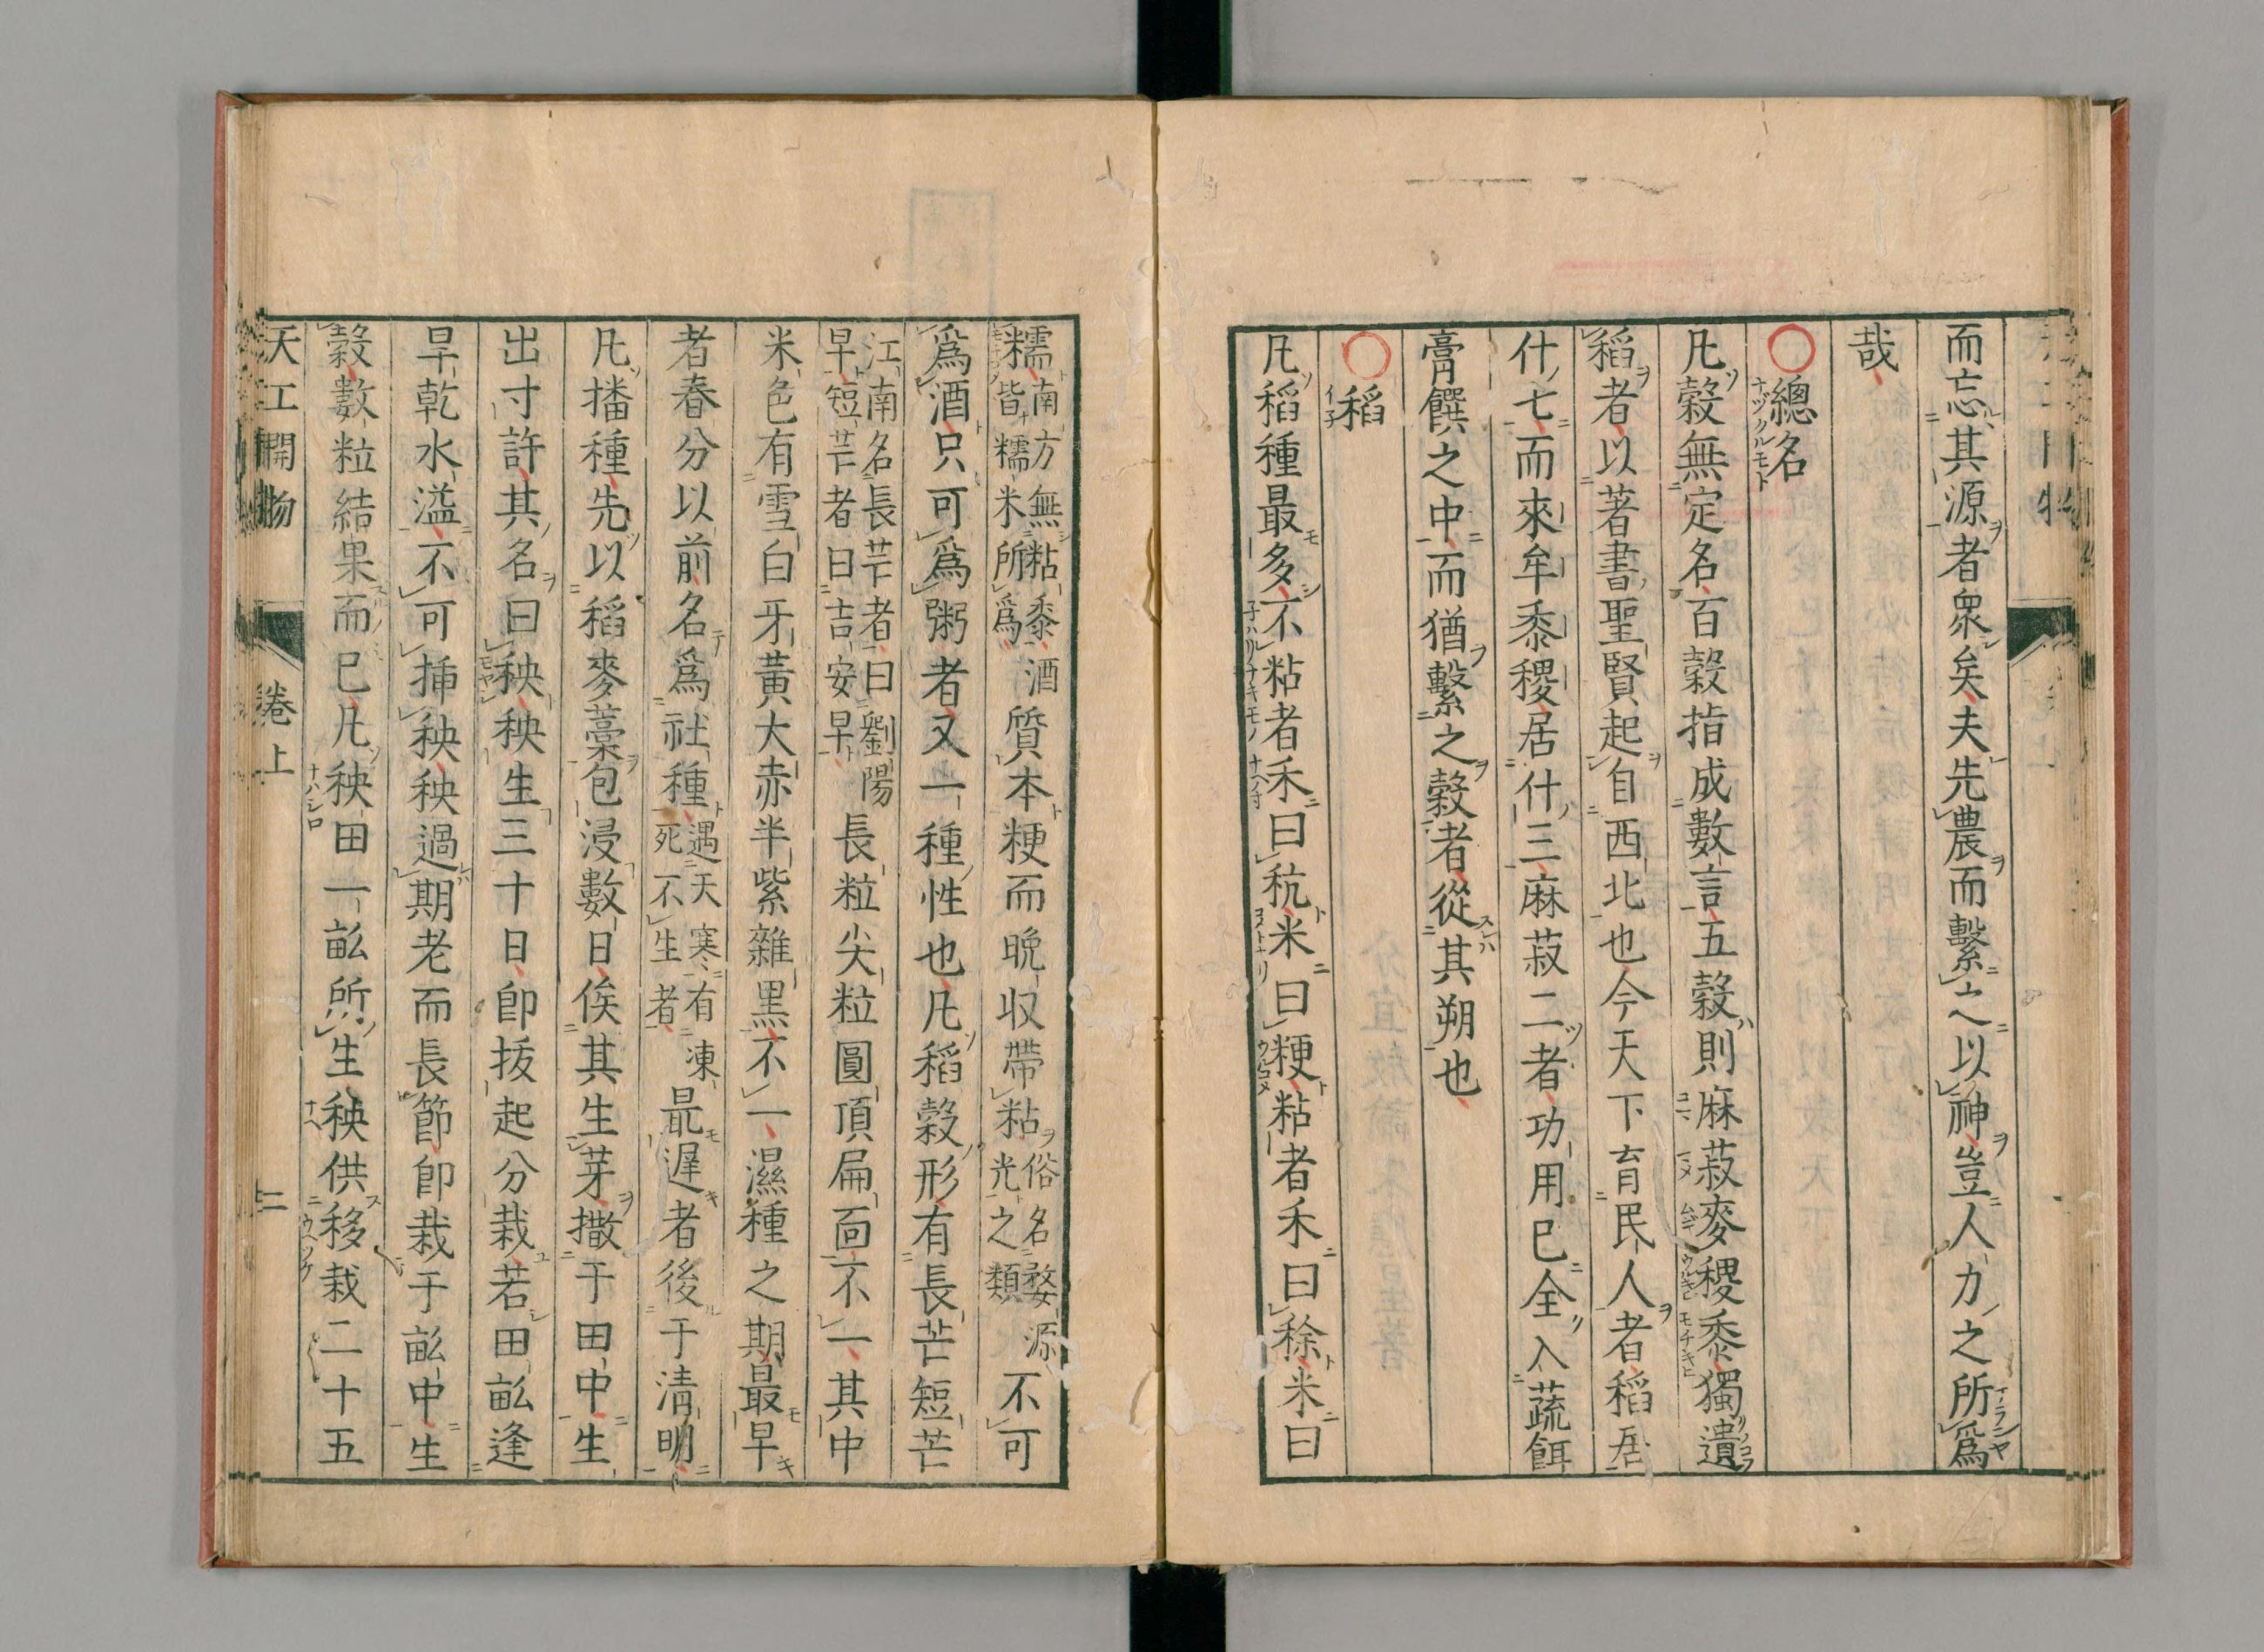 而忘其源者衆矣夫先農而繫之以神豈人力之所爲
哉
○總名
凡穀無定名百穀指成數言五穀則麻菽麥稷黍獨遺
稻者以著書聖賢起自西北也今天下育民人者稻居
什七而來牟黍稷居什三麻菽二者功用已全入蔬餌
膏饌之中而猶繫之穀者從其朔也
○稻
凡稻種最多不粘者禾曰秔米曰粳粘者禾曰稌米曰
糯南方無粘黍酒皆糯米所爲質本粳而晚収帶粘俗名婺源光之類不可
爲酒只可爲粥者又一種性也凡稻穀形有長芒短芒
江南名長芒者曰劉陽早短芒者曰吉安早長粒尖粒圓頂扁面不一其中
米色有雪白牙黃大赤半紫雜黑不一濕種之期最早
者春分以前名爲社種遇天寒有凍死不生者最遲者後于清明
凡播種先以稻麥藁包浸數日俟其生芽撒于田中生
出寸許其名曰秧秧生三十日卽拔起分栽若田畝逢
旱乾水溢不可插秧秧過期老而長節卽栽于畝中生
穀數粒結果而已凡秧田一畝所生秧供移栽二十五
天工開物 卷上 二